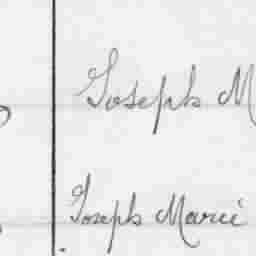 Joseph M
Joseph Marie